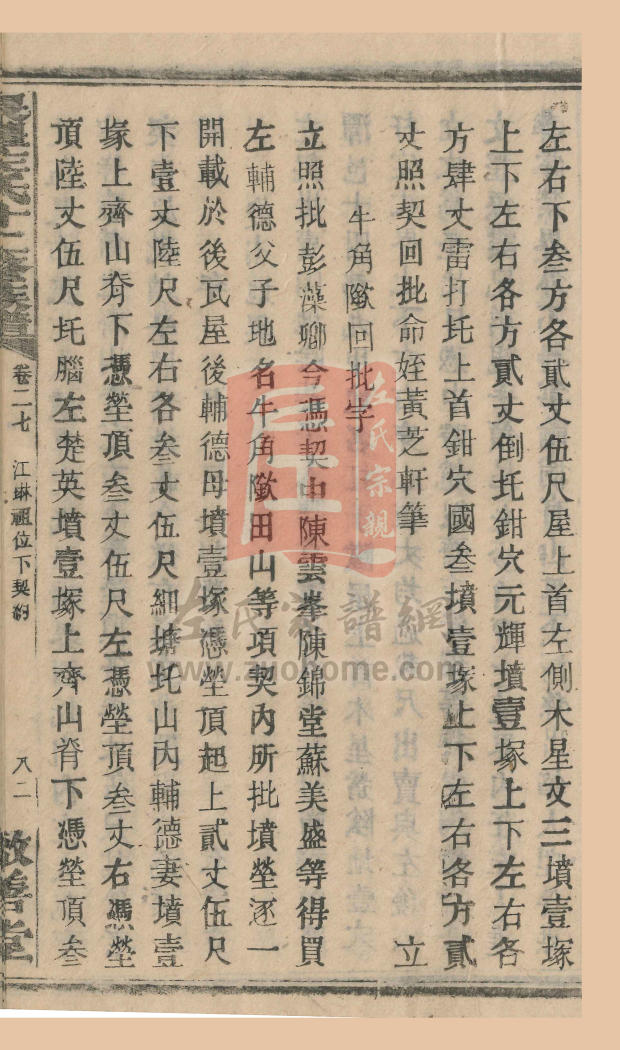 左右下叁方各貳丈伍尺屋上首左側木星文三墳壹塚
上下左右各方貳丈倒圫鉗穴元輝墳壹塚上下左右各
方肆丈雷打圫上首鉗穴國叁墳壹塚上下左右各方貳
丈照契回批命姪黃芝軒筆 立
牛角隞回批字
立照批彭藻卿今憑契中陳雲峯陳錦堂蘇美盛等得買
左輔德父子地名牛角隞田山等項契內所批墳塋逐一
開載於後瓦屋後輔德母墳壹塚憑塋頂起上貳丈伍尺
下壹丈陸尺左右各叁丈伍尺細塘圫山內輔德妻墳壹
塚上齊山脊下憑塋頂叁丈伍尺左憑塋頂叁丈右憑塋
頂陸丈伍尺圫腦左楚英墳壹塚上齊山脊下憑塋頂叁
左氏十二修族譜
卷二七 江琳祖位下契約
八二
敬善堂
左氏宗親
左氏家譜網
www.zuohome.com